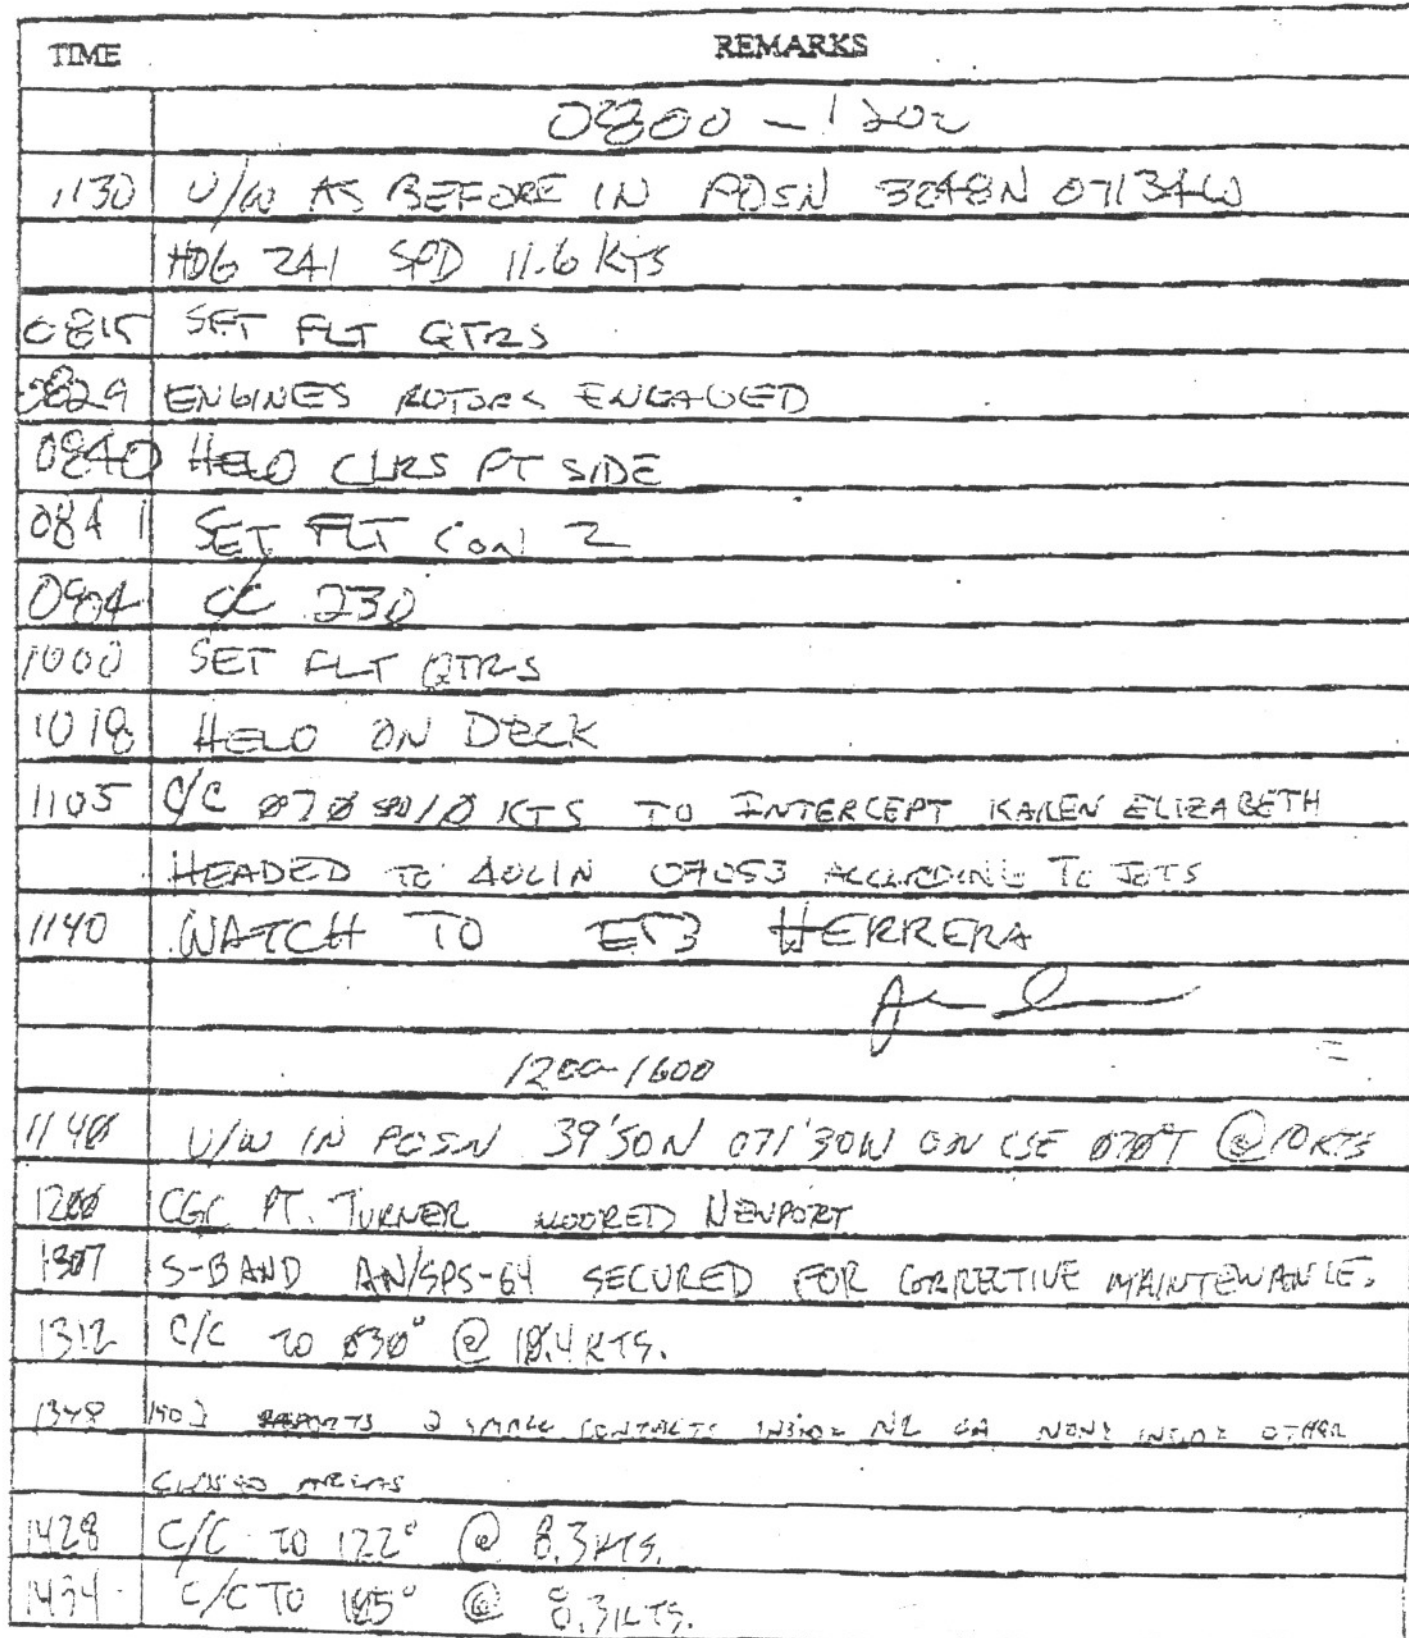 TIME REMARKS
0800 - 1200
1130 U/W AS BEFORE IN POSN 3948N 07134W
HDG 241 SPD 11.6 KTS
0815 SET FLT QTRS
0829 ENGINES ROTORS ENGAGED
0840 HELO CLRS PT SIDE
0841 SET FLT CON 2
0904 C/C 230
1000 SET FLT QTRS
1018 HELO ON DECK
1105 C/C 070 10 KTS TO INTERCEPT KAREN ELIZABETH
HEADED TO 07053 ACCORDING TO JOTS
1140 WATCH TO ET3 HERRERA
1200-1600
1140 U/W IN POSN 39'50N 071'30W ON CSE 070°T @ 10KTS
1200 CGC PT. TURNER MOORED NEWPORT
1307 S-BAND AN/SPS-64 SECURED FOR CORRECTIVE MAINTENANCE.
1312 C/C TO 030° @ 10.4 KTS.
1348 REPORTS 2 SMALL CONTACTS INSIDE NONE INSIDE OTHER
CLOSED AREAS
1428 C/C TO 122° @ 8.3KTS.
1434 C/C TO @ 8.3KTS.